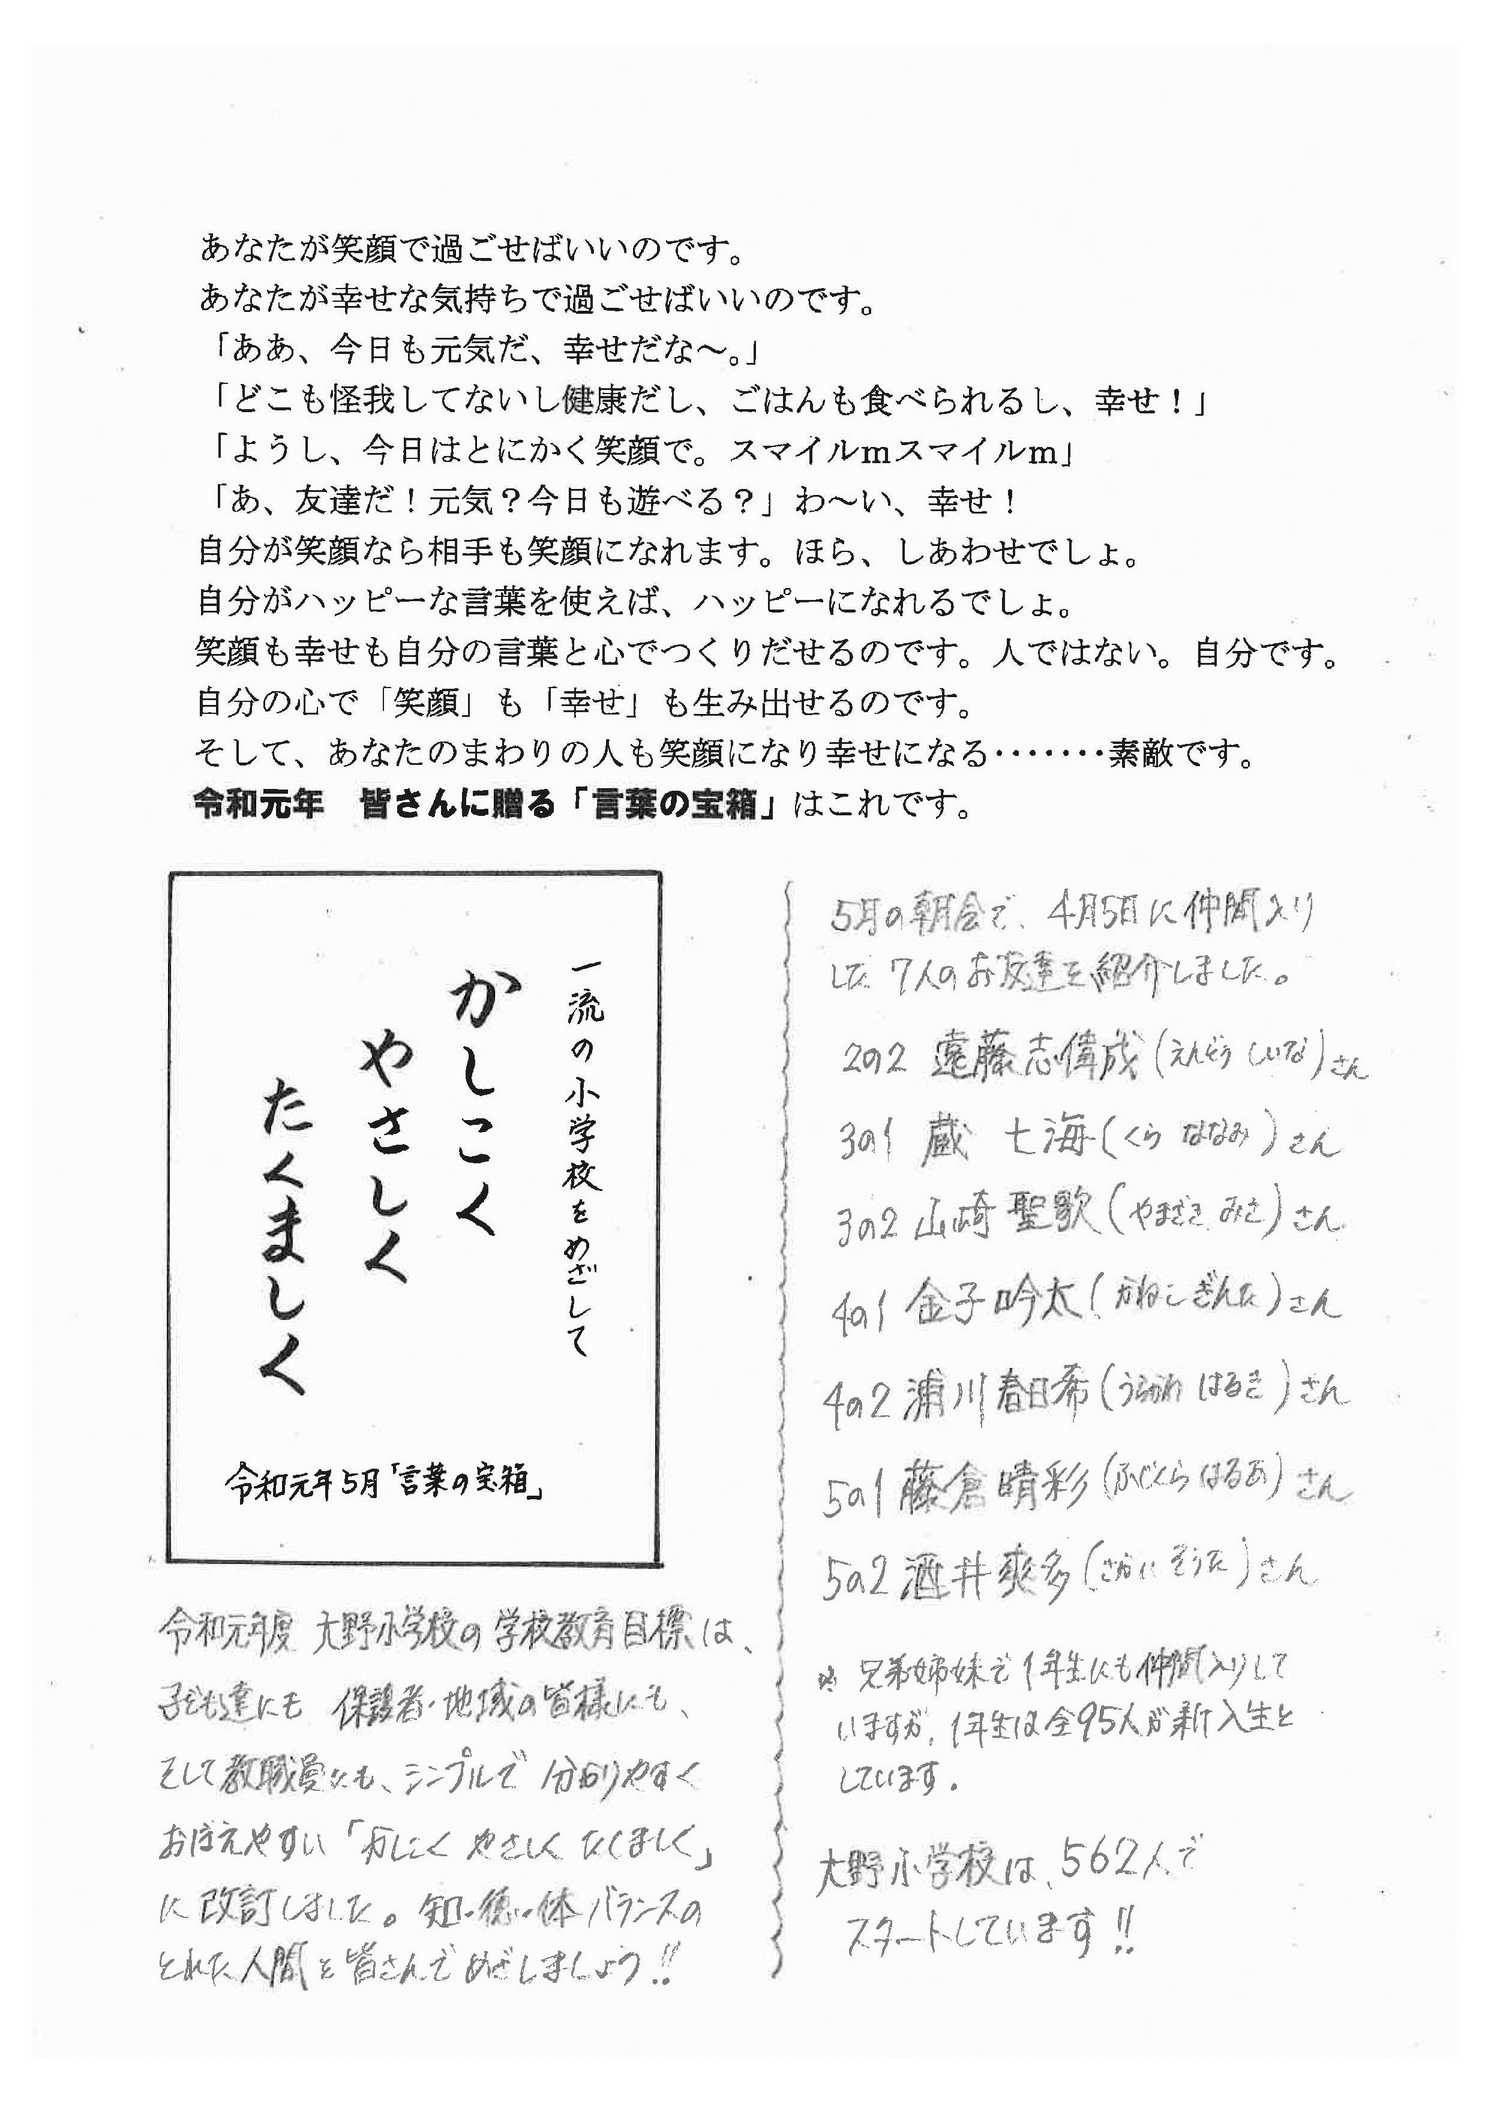 あなたが笑顔で過ごせばいいのです。
あなたが幸せな気持ちで過ごせばいいのです。
「ああ、今日も元気だ、幸せだな～。」
「どこも怪我してないし健康だし、ごはんも食べられるし、幸せ！」
「ようし、今日はとにかく笑顔で。スマイルmスマイルm」
「あ、友達だ！元気？今日も遊べる？」わ～い、幸せ！
自分が笑顔なら相手も笑顔になれます。ほら、しあわせでしょ。
自分がハッピーな言葉を使えば、ハッピーになれるでしょ。
笑顔も幸せも自分の言葉と心でつくりだせるのです。人ではない。自分です。
自分の心で「笑顔」も「幸せ」も生み出せるのです。
そして、あなたのまわりの人も笑顔になり幸せになる‥‥‥・素敵です。
令和元年　皆さんに贈る「言葉の宝箱」はこれです。
一流の小学校をめざして
かしこく
やさしく
たくましく
令和元年5月「言葉の宝箱」
令和元年度 大野小学校の学校教育目標は、
子ども達にも 保護者・地域の皆様にも、
そして教職員にも、シンプルで 分かりやすく
おぼえやすい「かしこく やさしく たくましく」
に改訂しました。知・徳・体 バランスの
とれた人間を皆さんでめざしましょう!!
5月の朝会で、4月5日に仲間入り
した 7人のお友達を紹介しました。
2の2 遠藤志偉成(えんどう しいな)さん
3の1 蔵 七海(くら ななみ)さん
3の2 山崎聖歌(やまざき みさ)さん
4の1 金子吟太(かねこ ぎんた)さん
4の2 浦川春日希(うらかわ はるき)さん
5の1 藤倉晴彩(ふじくら はるあ)さん
5の2 酒井爽多(さかい そうた)さん
※ 兄弟姉妹で1年生にも仲間入りして
いますが、1年生は全95人が新入生と
しています。
大野小学校は、562人で
スタートしています!!